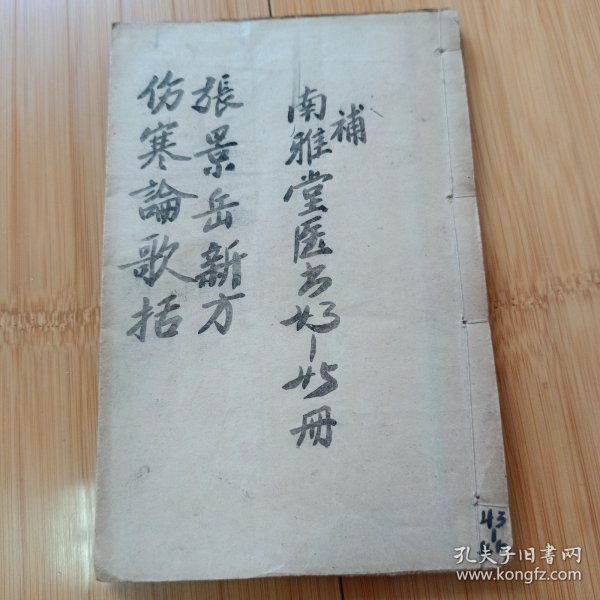 補
南雅堂医书43-45册
張景岳新方
伤寒論歌括
43
孔夫子旧书网
www.kongfz.com